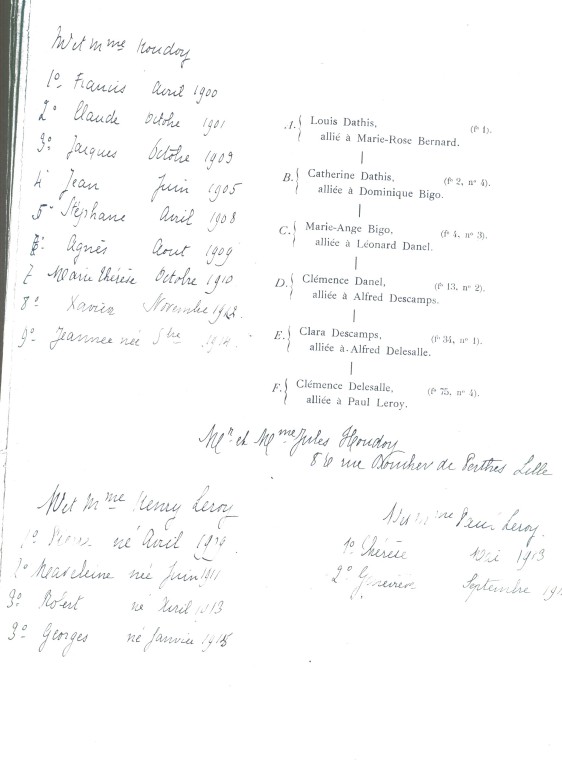 M et Mme Houdoy
1º Francis Avril 1900
2º Claude Octobre 1901
3º Jacques Octobre 1903
4º Jean Juin 1905
5º Stéphane Avril 1908
6º Agnès Aout 1909
7 Marie Thérèse Octobre 1910
8º Xavier Novembre 1912.
9º née 1914
A. Louis Dathis, (fº 1).
allié à Marie-Rose Bernard.
B. Catherine Dathis, (fº 2, nº 4).
alliée à Dominique Bigo.
C. Marie-Ange Bigo, (fº 4, nº 3).
alliée à Léonard Danel.
D. Clémence Danel, (fº 13, nº 2).
alliée à Alfred Descamps.
E. Clara Descamps, (fº 34, nº 1).
alliée à Alfred Delesalle.
F. Clémence Delesalle, (fº 75, nº 4).
alliée à Paul Leroy.
Mr et Mme Jules Houdoy
rue Boucher de Perthes Lille
M et Mme Henry Leroy
1º né Avril
2º Madeleine née Juin 1911
3º Robert né Avril 1913
3º Georges né Janvier 1915
M et Mme Paul Leroy.
1º Thérèse Mai 1913
2º Geneviève Septembre